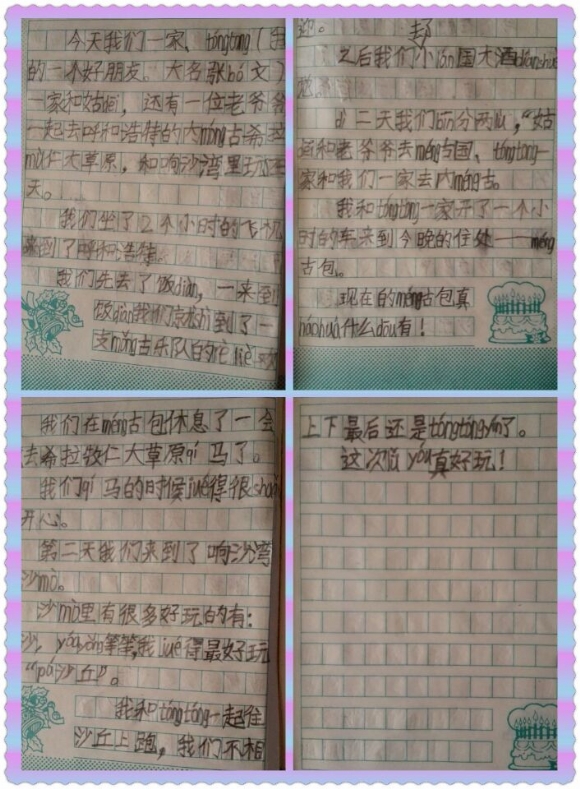 今天我们一家、tóngtong(我
的一个好朋友。大名张bó文)
一家和姑姑,还有一位老爷爷
一起去呼和浩特的内měng古希拉
mù仁大草原,和响沙湾里玩五
天。
我们坐了2个小时的飞机
来到了呼和浩特。
我们先去了饭diàn,一来到
饭diàn我们
到了一
支měng古乐队的
迎。
之后我们
国大酒diàn
d二天我们bīn分两lù,“姑
和老爷爷去měng古国、tóngtong一
家和我们一家去内měng古。
我和tóngtong一家开了一个小
时的车来到今晚的住处——měng
古包。
现在的měng古包真
háohuá什么dōu有!
我们在měng古包休息了一会
去希拉牧仁大草原qí马了。
我们qí马的时候jué得很
开心。
第二天我们来到了响沙湾
沙mò。
沙mò里有很多好玩的有:
沙,
等等,我jué得最好玩
“pá沙丘”。
我和tóngtóng一起往
沙丘上跑,我们不相
上下最后还是tóngtóngyíng了。
这次lǚ yóu真好玩!